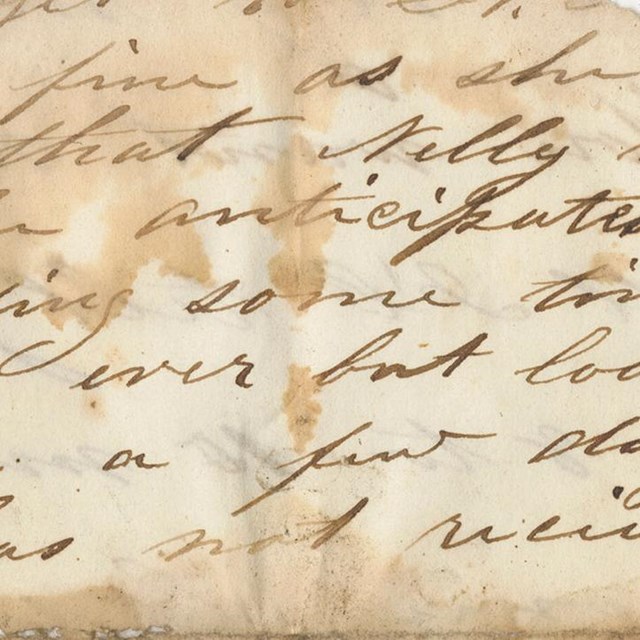 fine as she
that Nelly
anticipated
ing some tri
ever but lo
a few da
has not recei